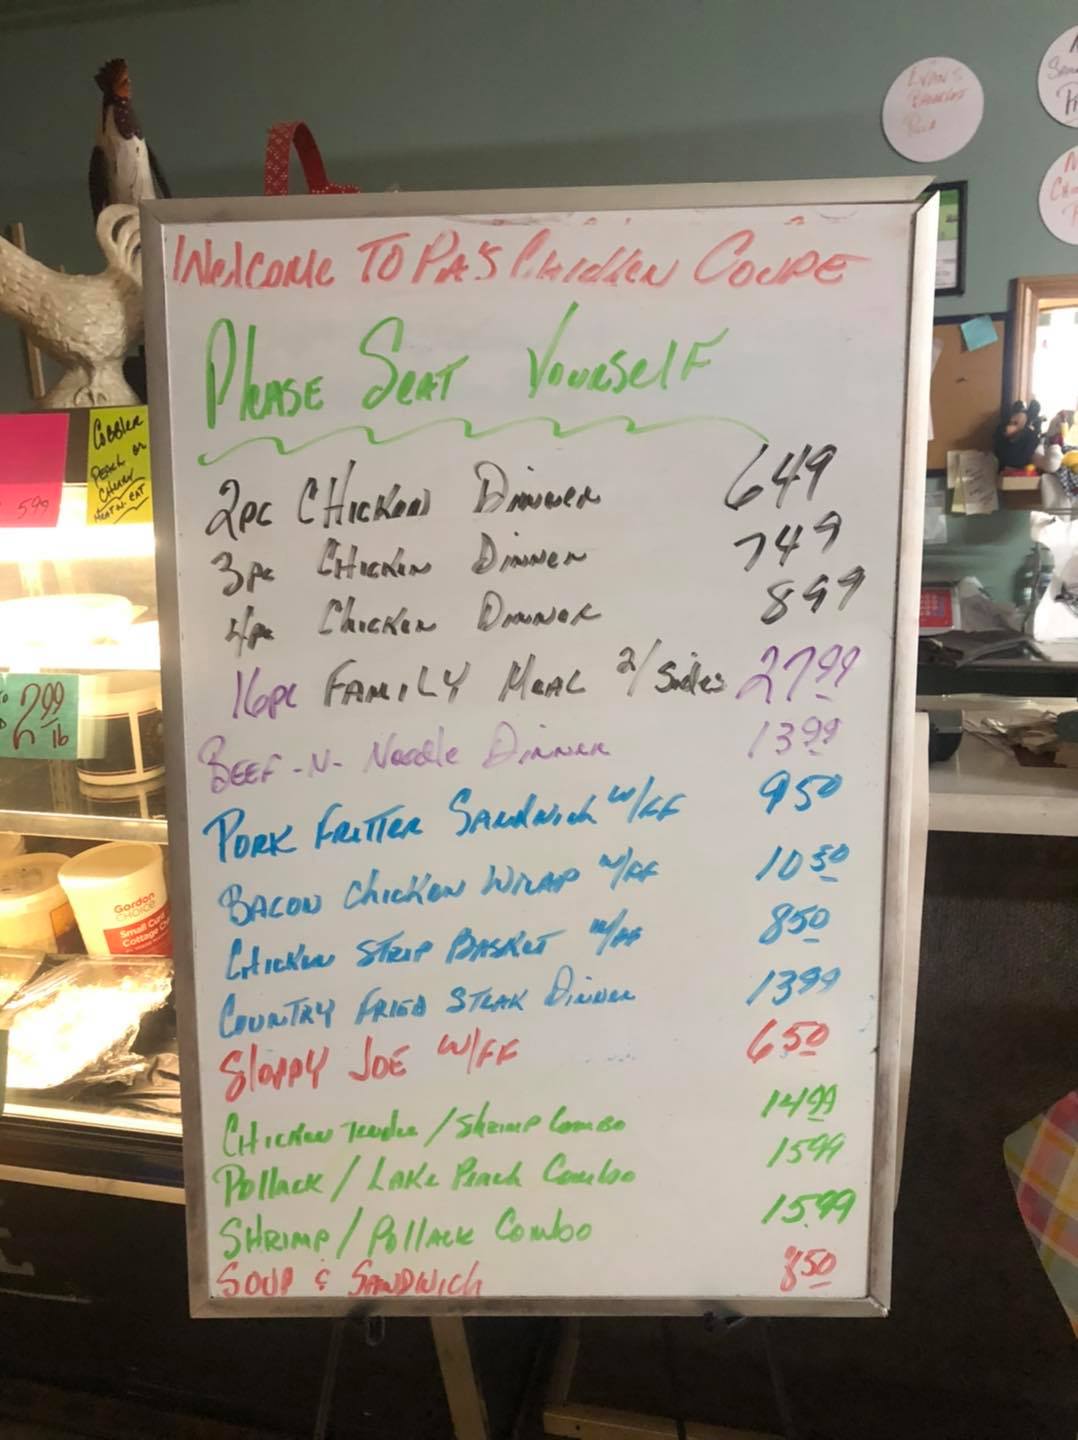 Welcome To Pa's Chicken Coupe
Please Seat Yourself
2pc Chicken Dinner 649
3pc Chicken Dinner 749
4pc Chicken Dinner 899
16pc Family Meal 2/Sides 27.99
Beef-N-Noodle Dinner 13 99
Pork Fritter Sandwich w/FF 950
Bacon Chicken Wrap w/FF 10 50
Chicken Strip Basket w/FF 850
Country Fried Steak Dinner 1399
Sloppy Joe w/FF 650
Chicken Tender/Shrimp Combo 1499
Pollack/Lake Perch Combo 1599
Shrimp/Pollack Combo 15.99
Soup & Sandwich 850
Cobbler
Peach or
Cherry
Heat-N-Eat
599
2 99
lb
Gordon
CHOICE
Small Curd
Cottage
Evan's
Breakfast
Pizza